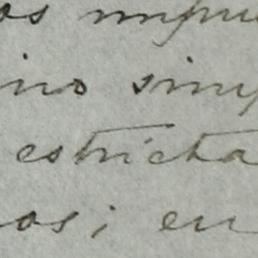 os impu
ino simp
estricta
os; en